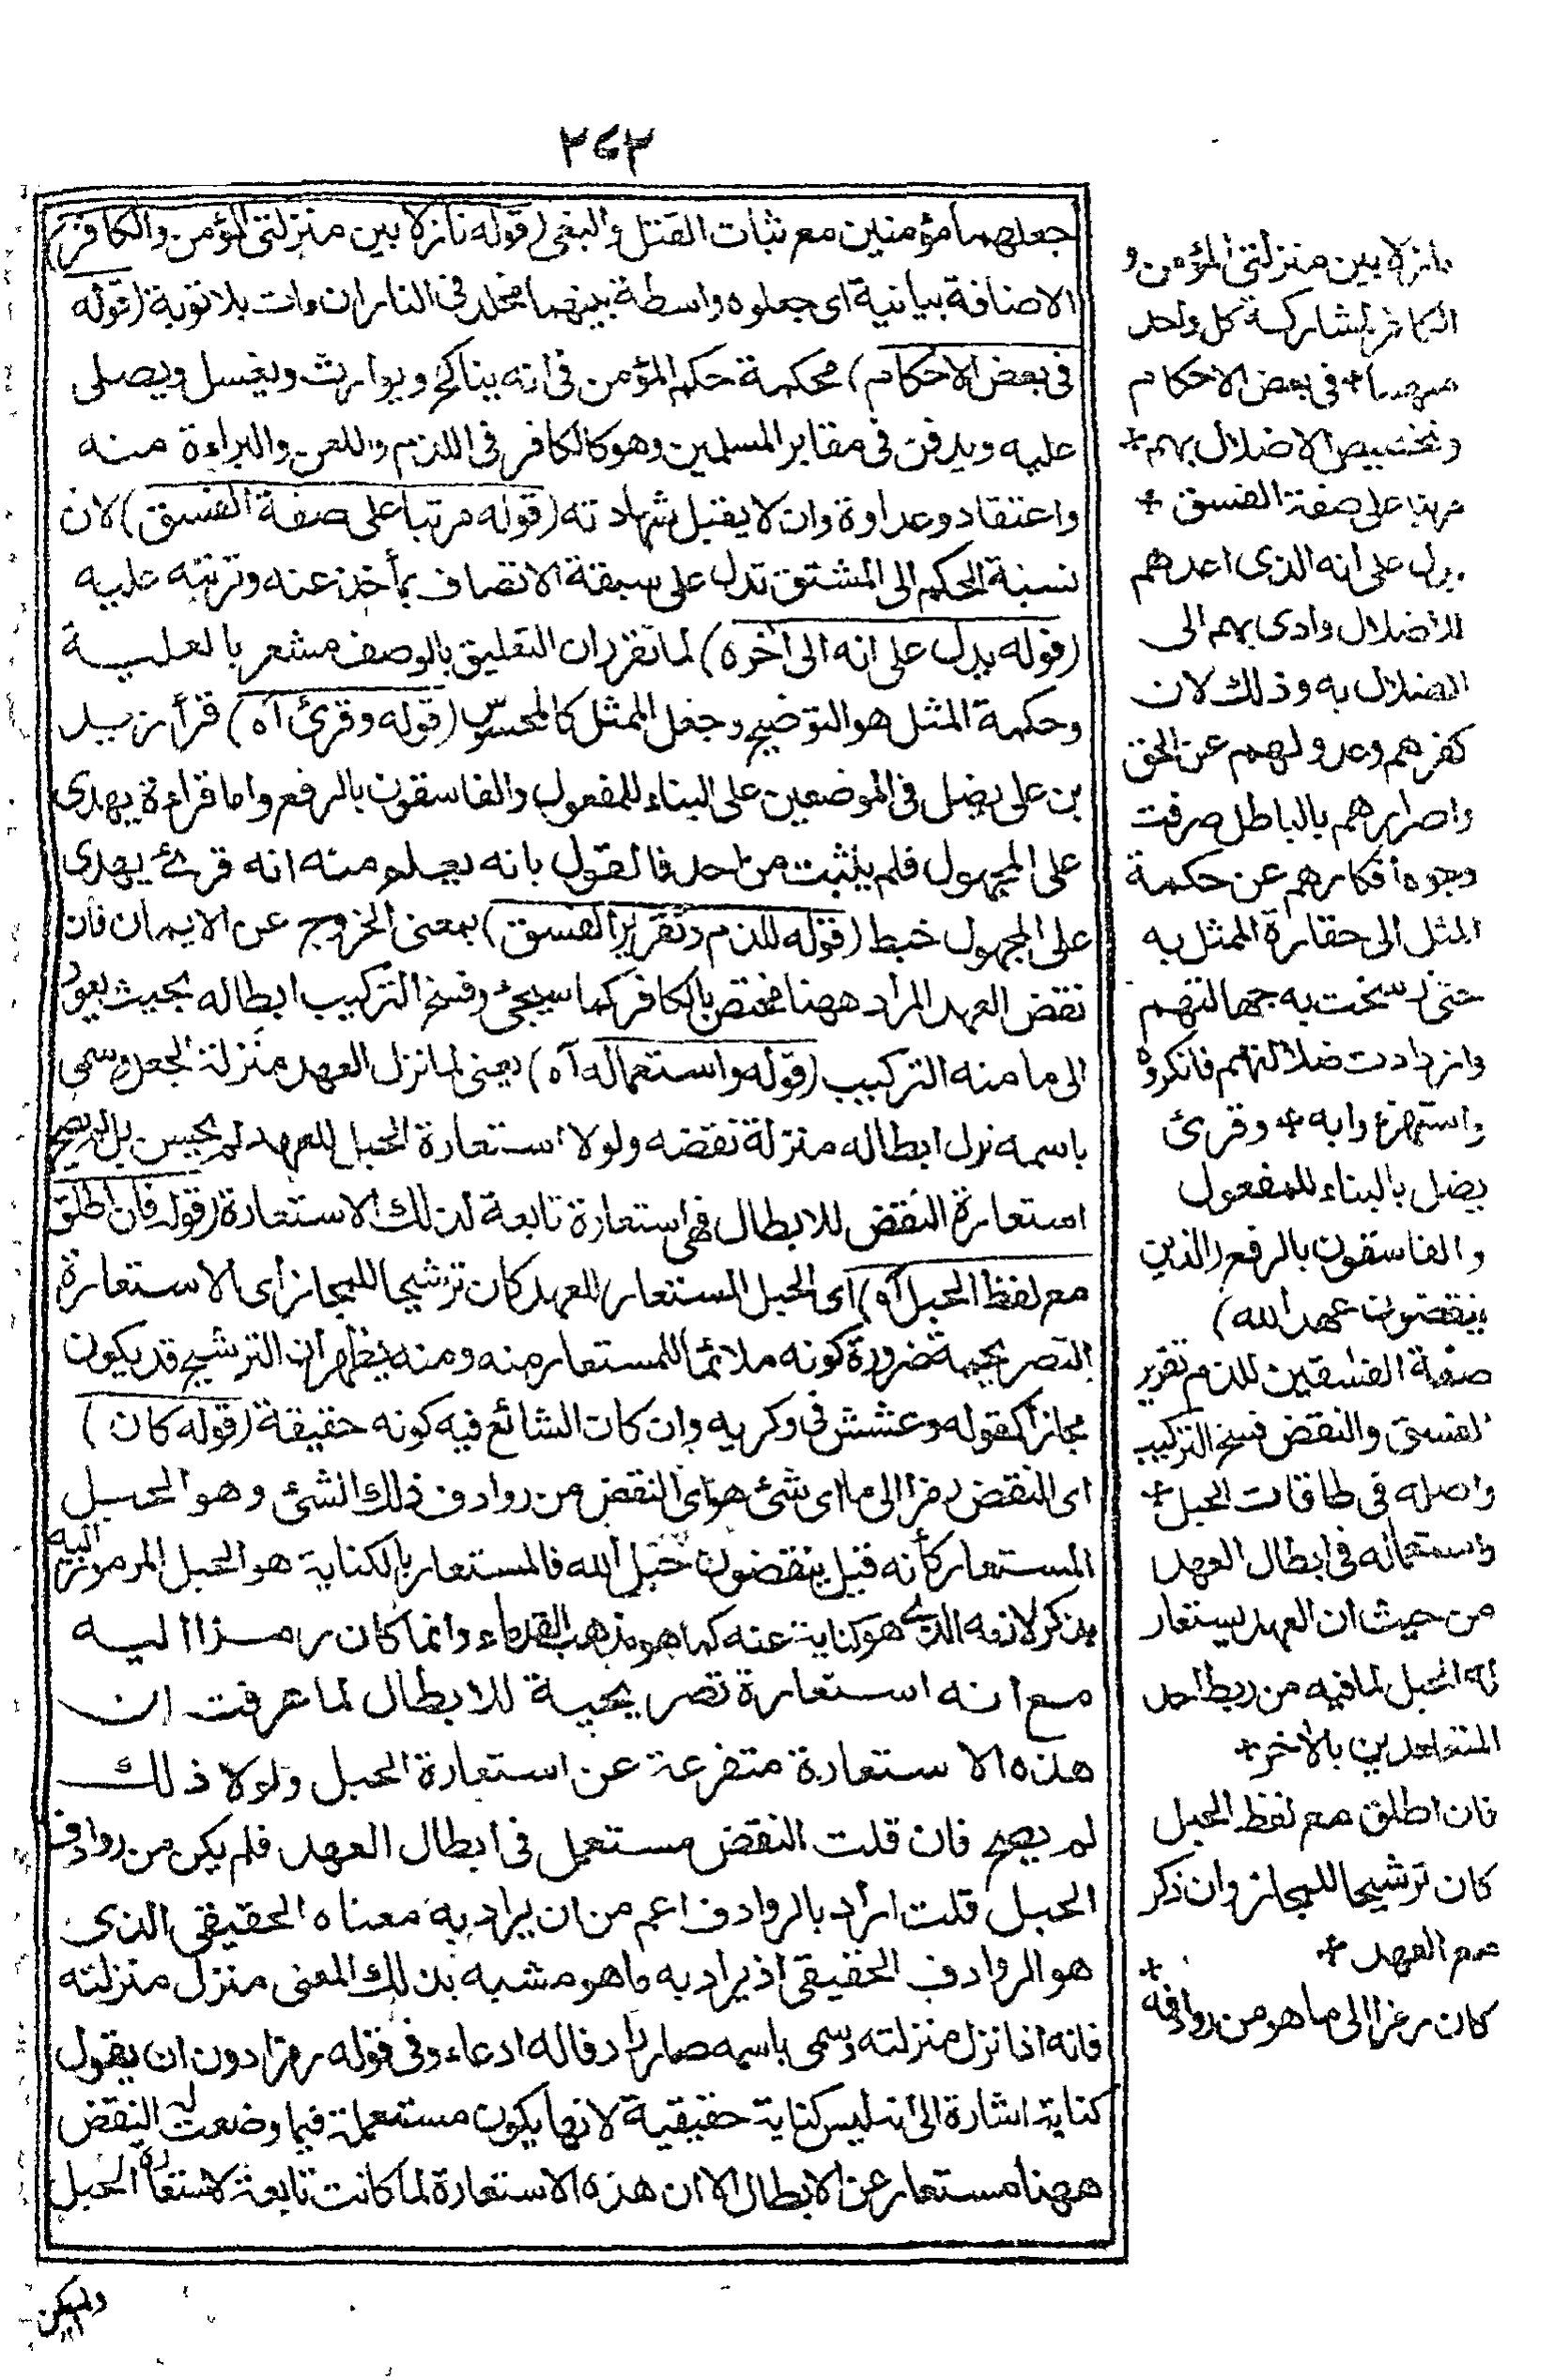 ٣٤٣
جعلهما مؤمنين مع ثبات القتل والبغى (قوله نازلا بين منزلتى المؤمن والكافر)
الاضافة بيانية اى جعلوه واسطة بينهما مخلد فى النار ان مات بلا توبة (قوله
فى بعض الاحكام) محكمة حكم المؤمن فى انه يناكح ويوارث ويغسل ويصلى
عليه ويدفن فى مقابر المسلمين وهو كالكافر فى الذم واللعن والبراءة منه
واعتقاد وعداوة وان لا يقبل شهادته (قوله مرتبا على صفة الفسق) لان
نسبة الحكم الى المشتق تدل على سبقة الاتصاف بمأخذ عنه وترتبه عليه
(قوله يدل على انه الى آخره) لما تقرر ان التعليق بالوصف مشعر بالعلية
وحكمة المثل هو التوضيح وجعل الممثل كالمحسوس (قوله وقرئ آه) قرأ زيد
بن على يضل فى الموضعين على البناء للمفعول والفاسقون بالرفع واما قراءة يهدى
على المجهول فلم يثبت من احد فالقول بانه يعلم منه انه قرئ يهدى
على المجهول خبط (قوله للذم وتقرير الفسق) بمعنى الخروج عن الايمان فان
نقض العهد المراد ههنا مختص بالكافر كما سيجئ وفسخ التركيب ابطاله بحيث يعود
الى ما منه التركيب (قوله واستعماله آه) يعنى لما نزل العهد منزلة الحبل وسمى
باسمه نزل ابطاله منزلة نقضه ولولا استعارة الحبل للعهد لم يحسن بل لم يصح
استعارة النقض للابطال فهى استعارة تابعة لذلك الاستعارة (قوله فان اطلق
مع لفظ الحبل آه) اى الحبل المستعار للعهد كان ترشيحا للمجاز اى الاستعارة
التصريحية ضرورة كونه ملائما للمستعار منه ومنه يظهر ان الترشيح قد يكون
مجازا كقوله وعشش فى وكريه وان كان الشائع فيه كونه حقيقة (قوله كان)
اى النقض رمزا الى ما اى شئ هو اى النقض من روادف ذلك الشئ وهو الحبل
المستعار كأنه قيل ينقضون حبل الله فالمستعار بالكناية هو الحبل المرموز اليه
بذكر لازمه الذى هو كناية عنه كما هو مذهب القدماء وانما كان رمزا اليه
مع انه استعارة تصريحية للابطال لما عرفت ان
هذه الاستعارة متفرعة عن استعارة الحبل ولولا ذلك
لم يصح فان قلت النقض مستعمل فى ابطال العهد فلم يكن من روادف
الحبل قلت اراد بالروادف اعم من ان يراد به معناه الحقيقى الذى
هو الروادف الحقيقى اذ يراد به ما هو مشبه بذلك المعنى منزل منزلته
فانه اذا نزل منزلته وسمى باسمه صار رادفا له ادعاء وفى قوله رمزا دون ان يقول
كناية اشارة الى انه ليس كناية حقيقية لانها يكون مستعملة فيما وضعت له النقض
ههنا مستعار عن الابطال الا ان هذه الاستعارة لما كانت تابعة لاستعارة الحبل
ولم يكن
نازلا بين منزلتى المؤمن و
الكافر لمشاركة كل واحد
منهما + فى بعض الاحكام
وتخصيص الاضلال بهم +
مرتبا على صفة الفسق +
يدل على انه الذى اعدهم
للاضلال وادى بهم الى
الضلال به وذلك لان
كفرهم وعدولهم عن الحق
واصرارهم بالباطل صرفت
وجوه افكارهم عن حكمة
المثل الى حقارة الممثل به
حتى رسخت به جهالتهم
وازدادت ضلالتهم فانكروه
واستهزءوا به + وقرئ
يضل بالبناء للمفعول
والفاسقون بالرفع (الذين
ينقضون عهد الله)
صفة الفسقين للذم تقرير
الفسق والنقض فسخ التركيب
واصله فى طاقات الحبل +
واستعماله فى ابطال العهد
من حيث ان العهد يستعار
له الحبل لما فيه من ربط احد
المتعاهدين بالآخر +
فان اطلق مع لفظ الحبل
كان ترشيحا للمجاز وان ذكر
مع العهد +
كان رمزا الى ما هو من روادفه +